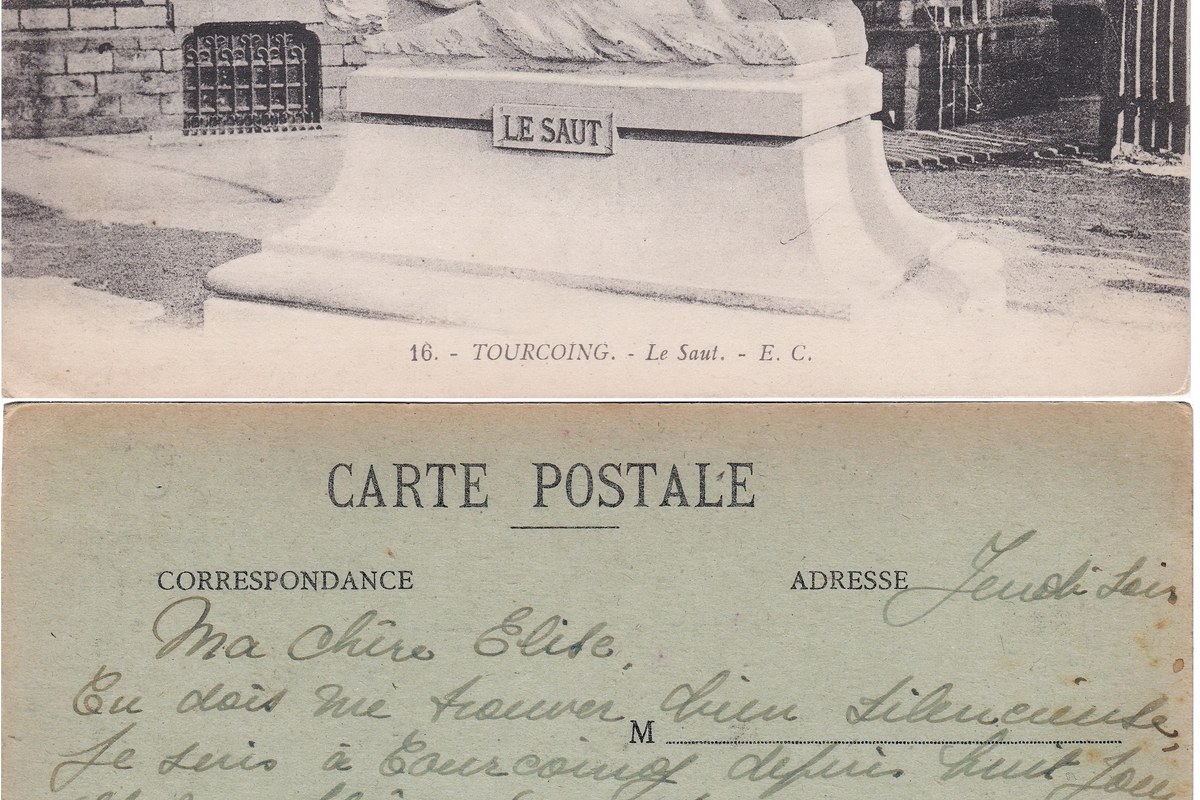 LE SAUT
16. - TOURCOING. - Le Saut. - E. C.
CARTE POSTALE
CORRESPONDANCE
ADRESSE
Jeudi soir
Ma chère Elise,
Tu dois me trouver bien silencieuse,
M
Je suis à Tourcoing depuis huit jou